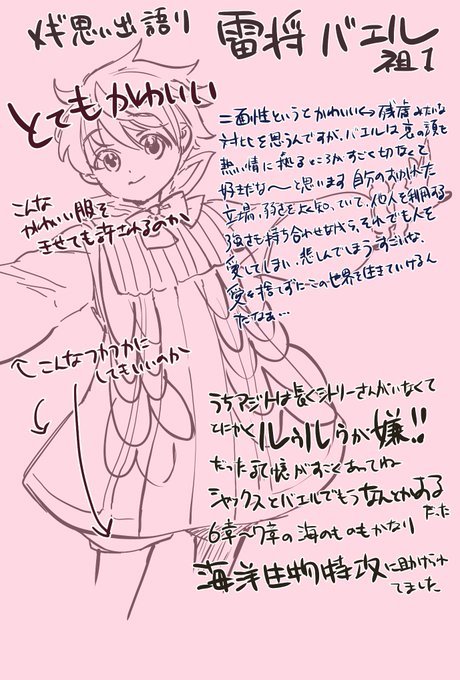 メギ思い出語り
雷将 バエル
祖1
とてもかわいい
二面性というとかわいい↔残虐みたいな
対比を思うんですが、バエルは裏の顔も
熱い情に拠るところがすごく切なくて
好きだな〜と思います 自分のおかれた
立場、弱さを熟知していて、他人を利用する
強さも持ち合わせながら、それでも人を
愛してしまい、悲しんでしまう すごいな、
愛を捨てずにこの世界を生きていけるん
だなあ…
こんな
かわいい服を
きせても許されるのか
←こんなつかつかに
してもいいのか
うちアジトは長くシトリーさんがいなくて
とにかくルゥルゥが嫌!!
だった記憶がすごくあってね
シャックスとバエルでもうなんとかする
だった
6章〜7章の海のものもかなり
海洋生物特攻に助けられ
てました